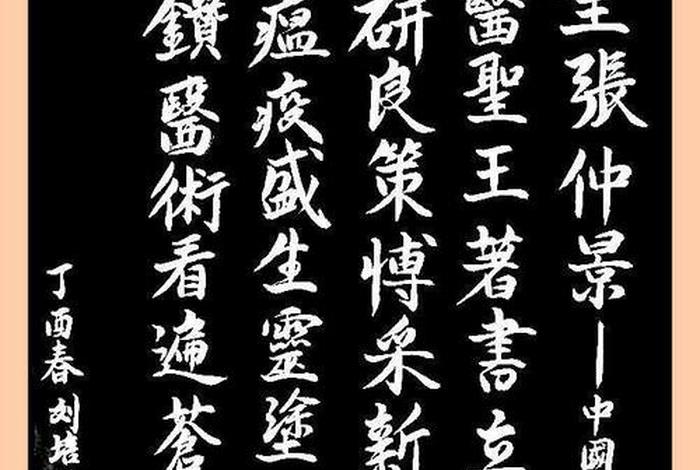 張仲景—中國
醫聖王著書立
研良策愽采新
瘟疫盛生靈塗
鑽醫術看遍蒼
丁酉春刘培